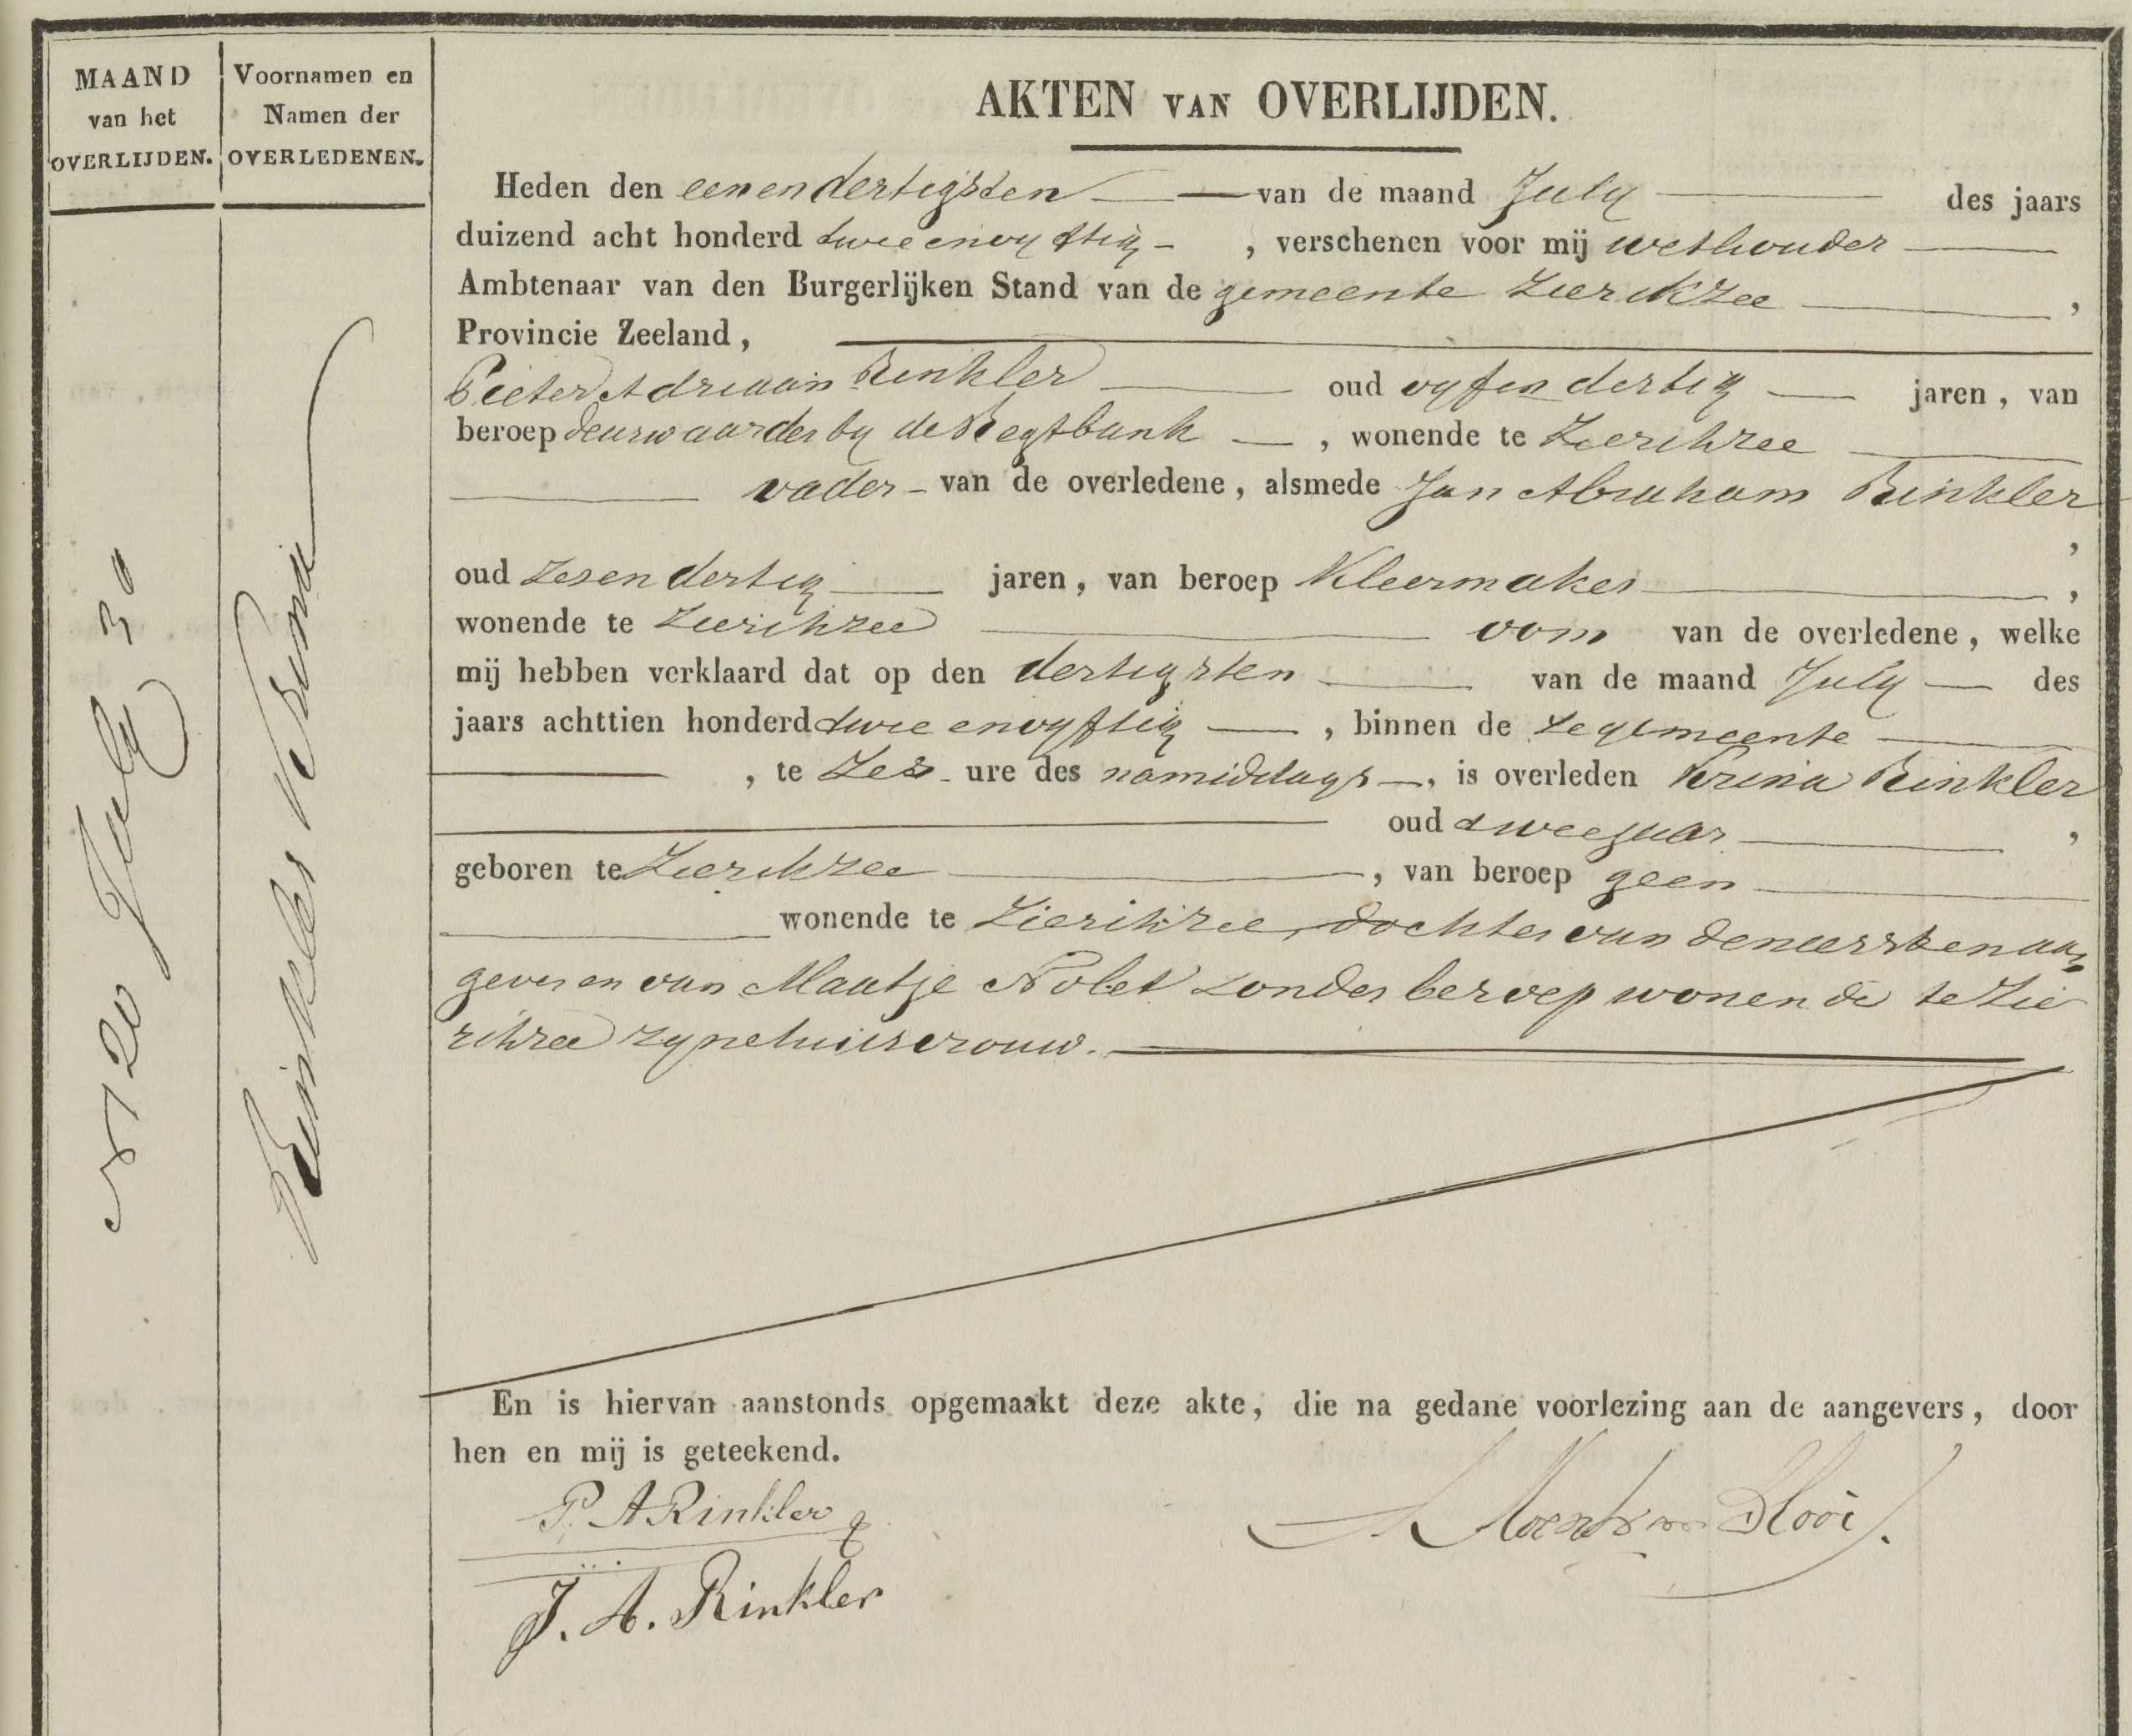 MAAND
van het
OVERLIJDEN.
Voornamen en
Namen der
OVERLEDENEN.
N 120 July 30
Rinkler Krina
AKTEN VAN OVERLIJDEN.
Heden den eenendertigsten van de maand July des jaars
duizend acht honderd tweeenvyftig , verschenen voor mij wethouder
Ambtenaar van den Burgerlijken Stand van de gemeente Zierikzee ,
Provincie Zeeland ,
Pieter Adriaan Rinkler oud vyfendertig jaren , van
beroep deurwaarder by de Regtbank , wonende te Zierikzee
vader van de overledene , alsmede Jan Abraham Rinkler
,
oud zesendertig jaren , van beroep Kleermaker ,
wonende te Zierikzee oom van de overledene , welke
mij hebben verklaard dat op den dertigsten van de maand July des
jaars achttien honderd tweeenvyftig , binnen de ze gemeente
, te zes ure des namiddags , is overleden Krina Rinkler
oud twee jaar ,
geboren te Zierikzee , van beroep geen
wonende te Zierikzee, dochter van den eersten aan
gever en van Maatje Nolet zonder beroep wonende te Zie
rikzee zyne huisvrouw.
En is hiervan aanstonds opgemaakt deze akte , die na gedane voorlezing aan de aangevers , door
hen en mij is geteekend.
P. A Rinkler
J. A. Rinkler